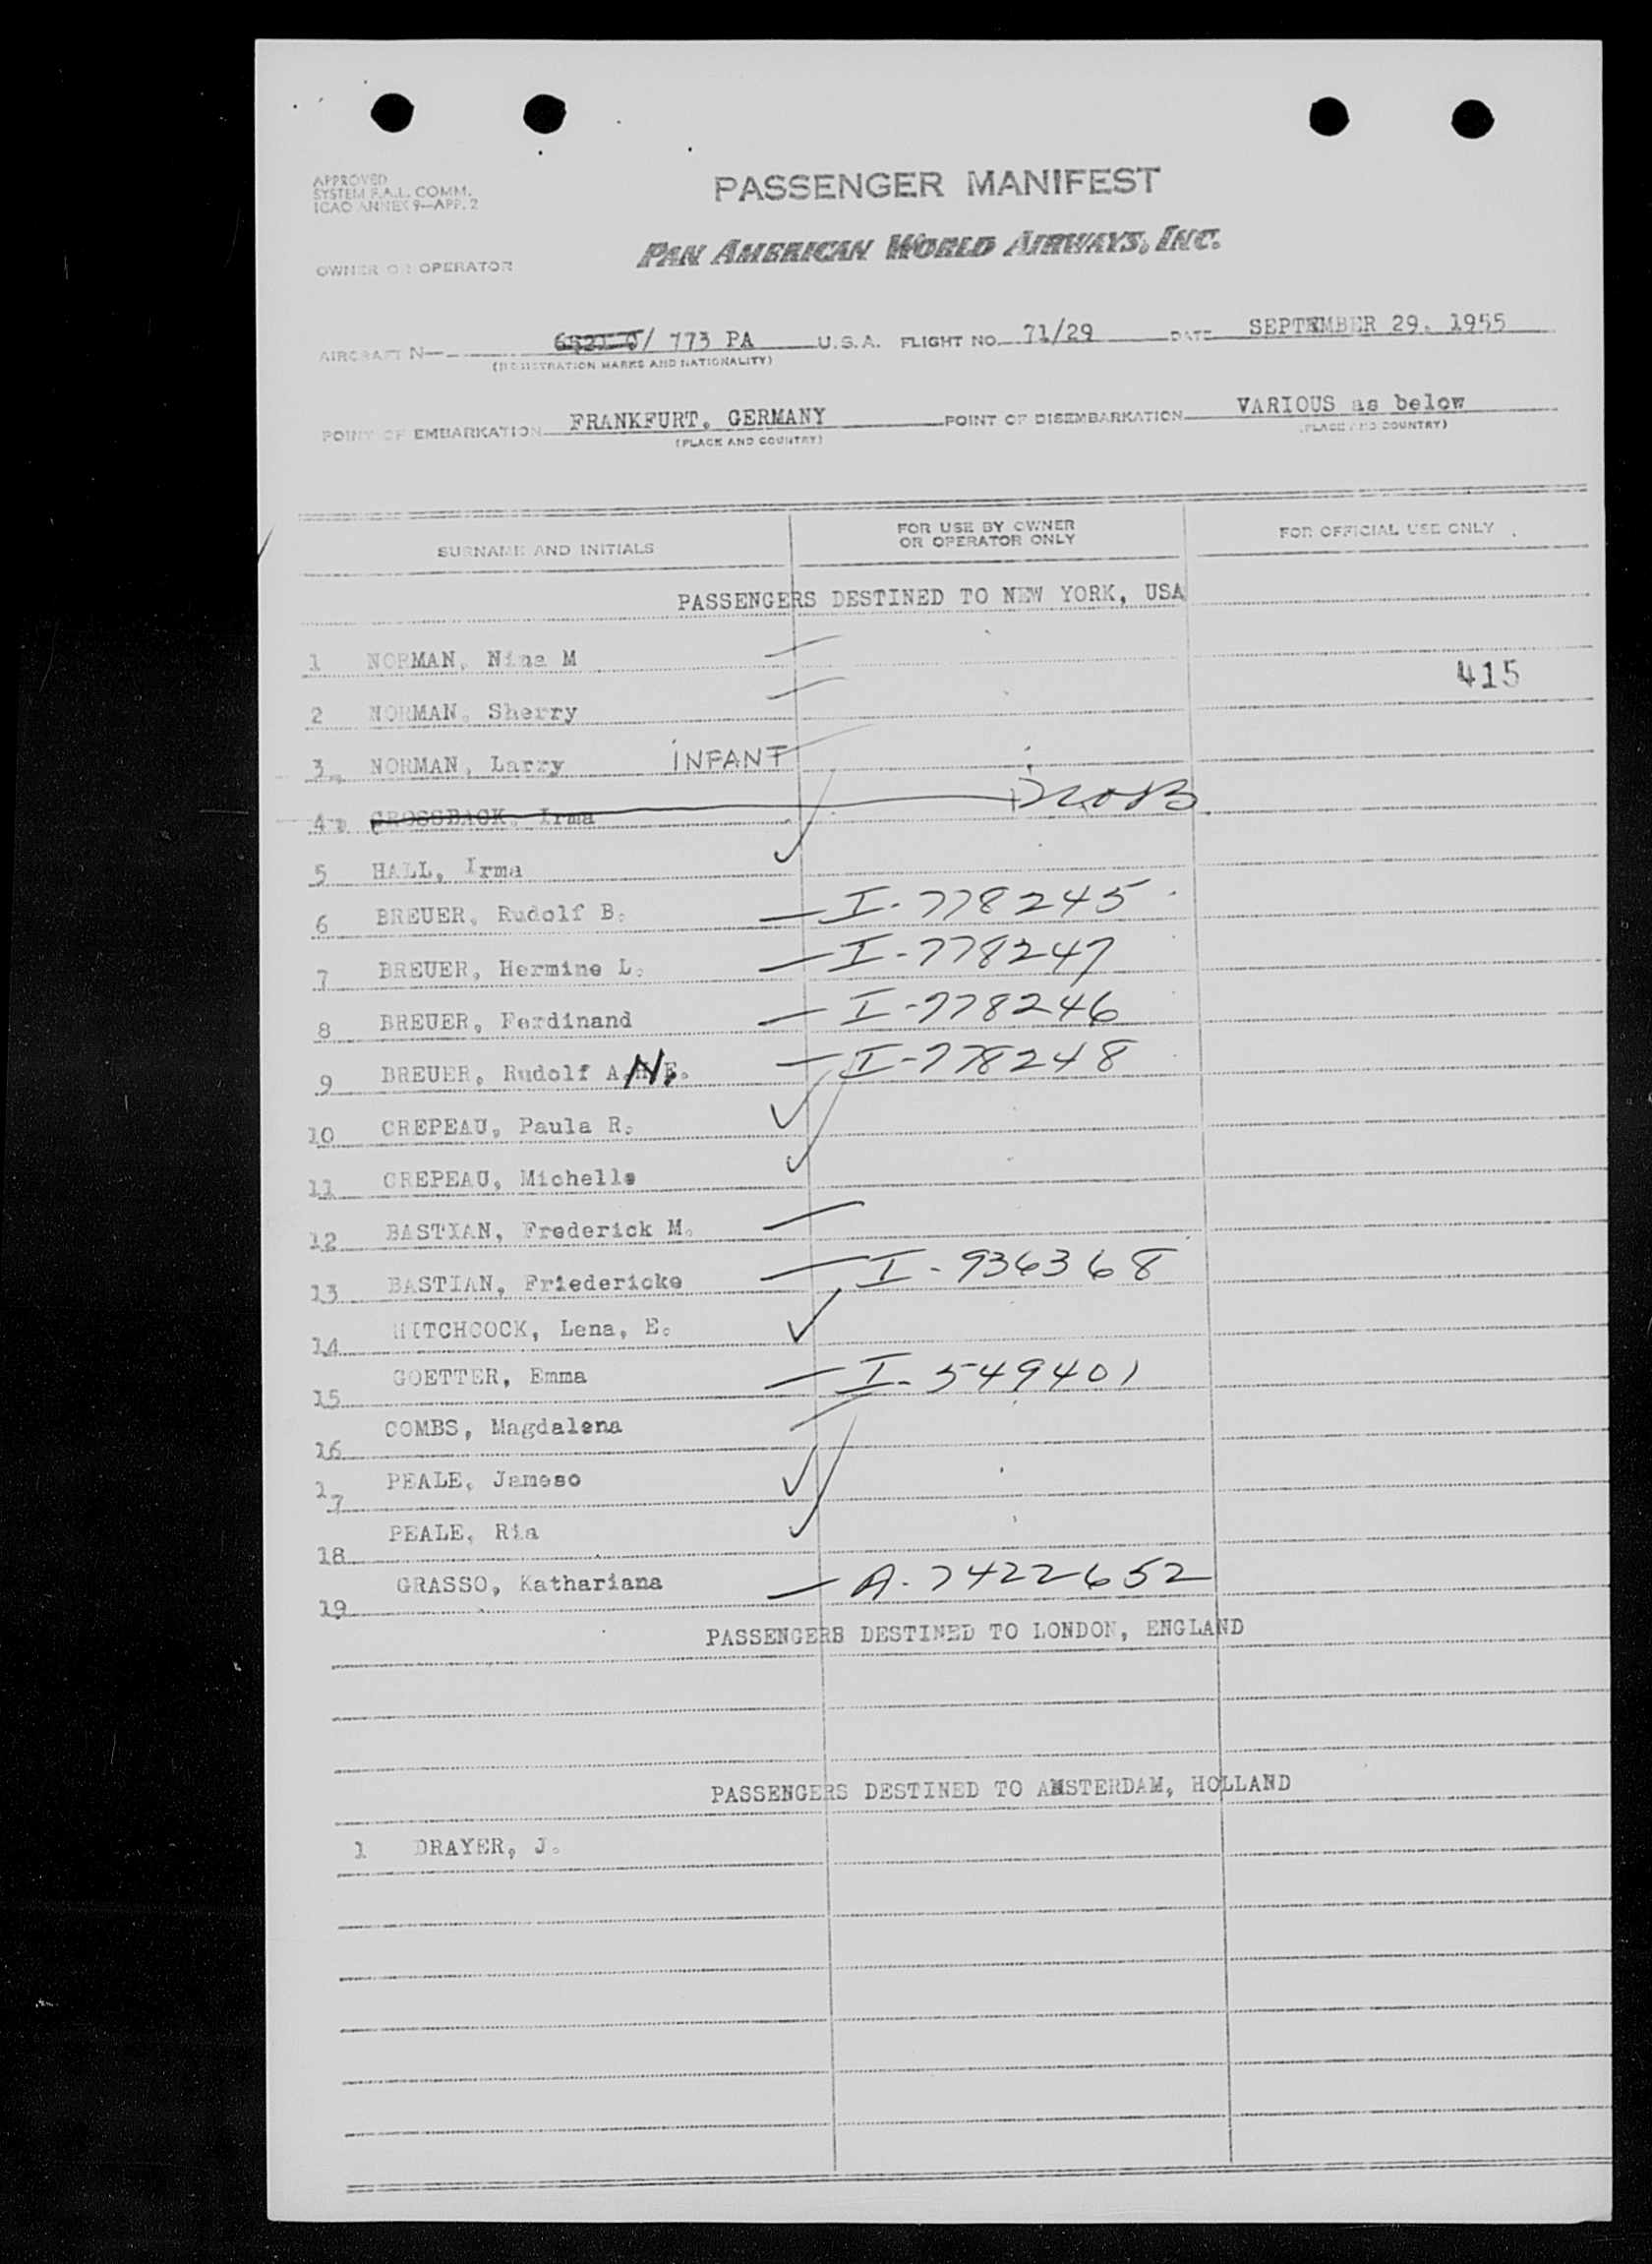 APPROVED
SYSTEM F.A.L. COMM.
ICAO ANNEX 9—APP. 2
PASSENGER MANIFEST
OWNER OR OPERATOR PAN AMERICAN WORLD AIRWAYS, INC.
AIRCRAFT N— / 773 PA U.S.A. FLIGHT NO. 71/29 DATE SEPTEMBER 29. 1955
(REGISTRATION MARKS AND NATIONALITY)
POINT OF EMBARKATION FRANKFURT, GERMANY POINT OF DISEMBARKATION VARIOUS as below
(PLACE AND COUNTRY) (PLACE AND COUNTRY)
SURNAME AND INITIALS FOR USE BY OWNER OR OPERATOR ONLY FOR OFFICIAL USE ONLY
PASSENGERS DESTINED TO NEW YORK, USA
1 NORMAN, Nina M
415
2 NORMAN, Sherry
3 NORMAN, Larry INFANT
4 GROSSBACK, Irma NOB
5 HALL, Irma
6 BREUER, Rudolf B. I-778245
7 BREUER, Hermine L. I-778247
8 BREUER, Ferdinand I-778246
9 BREUER, Rudolf A.N.E. I-778248
10 CREPEAU, Paula R.
11 CREPEAU, Michelle
12 BASTIAN, Frederick M.
13 BASTIAN, Friedericke I-936368
14 HITCHCOCK, Lena, E.
15 GOETTER, Emma I-549401
16 COMBS, Magdalena
17 PEALE, Jameso
18 PEALE, Ria
19 GRASSO, Kathariana A-7422652
PASSENGERS DESTINED TO LONDON, ENGLAND
PASSENGERS DESTINED TO AMSTERDAM, HOLLAND
1 DRAYER, J.